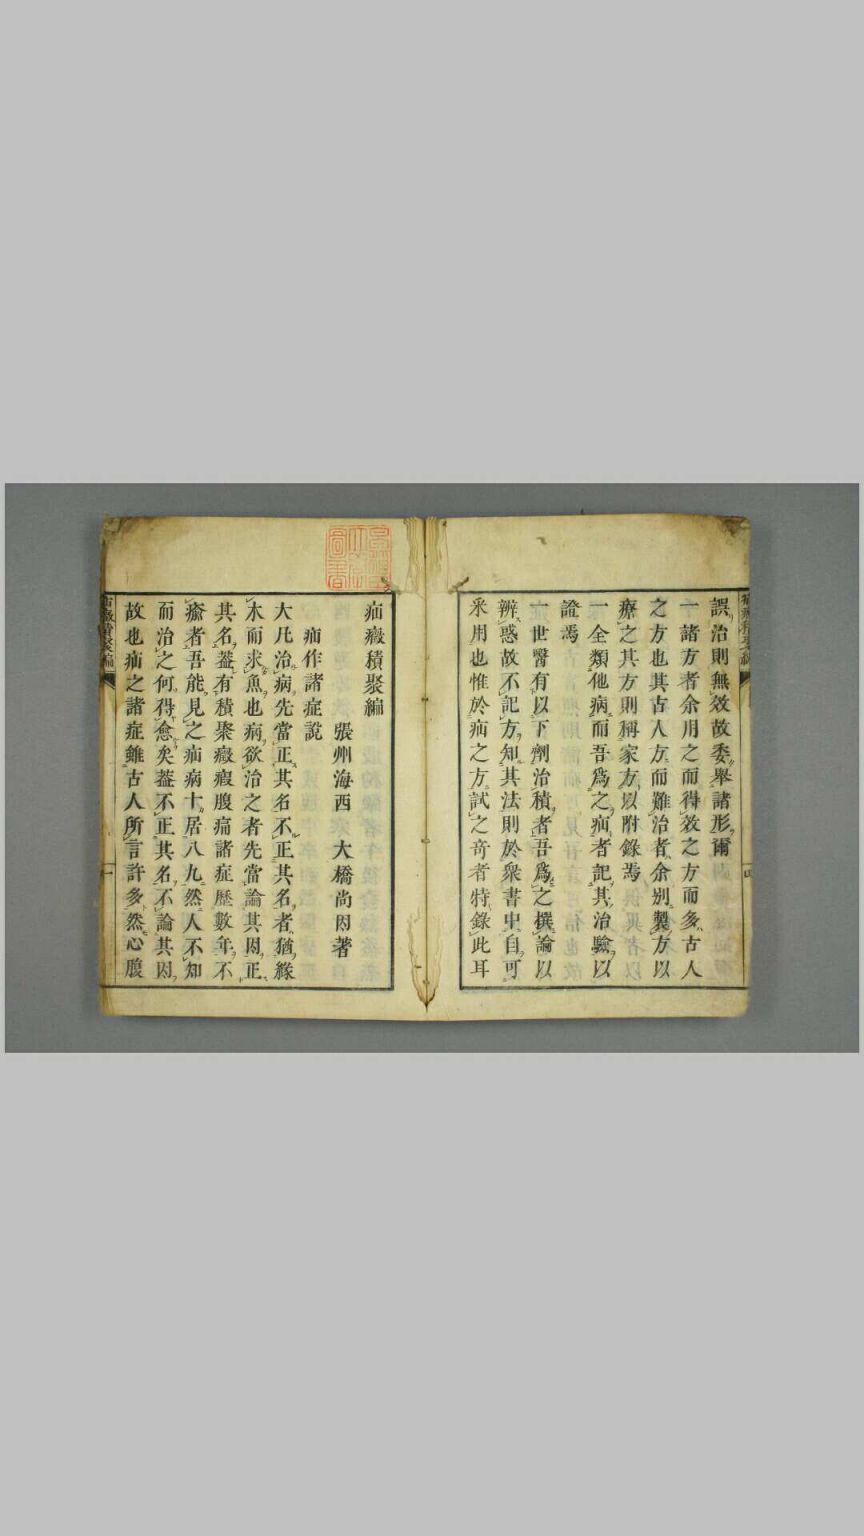 誤治則無效故委舉諸形爾
一諸方者余用之而得效之方而多古人
之方也其古人方而難治者余別製方以
療之其方則稱家方以附錄焉
一全類他病而吾爲之疝者記其治驗以
證焉
一世醫有以下劑治積者吾爲之撰論以
辨惑故不記方知其法則於衆書中自可
釆用也惟於疝之方試之奇者特錄此耳
疝癥積聚編
張州海西 大橋尚因著
疝作諸症說
大凡治病先當正其名不正其名者猶緣
木而求魚也病欲治之者先當論其因正
其名葢有積聚癥瘕腹痛諸症歷數年不
瘉者吾能見之疝病十居八九然人不知
而治之何得愈矣葢不正其名不論其因
故也疝之諸症雖古人所言許多然心腹
疝癥積聚編
四
疝癥積聚編
一